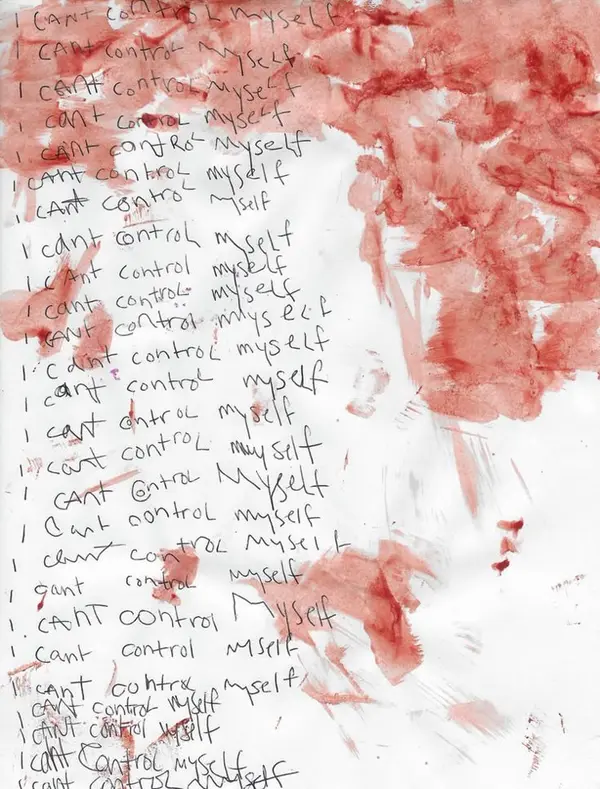 I CANT CONTROL MYSELF
I CANT control Myself
I CANT control Myself
I cant control myself
I CANT contRoL Myself
I CANT controL myself
I CANT control Myself
I cant controL myself
I CAnt control myself
I cant control myself
I CANT control myself
I Cant control myself
I cant control myself
I cant controL myself
I cant controL myself
I CANT controL Myself
I Cant control myself
I cant control Myself
I cant control myself
I CANT control Myself
I Cant control mySelf
I CANT control myself
I CANT control myself
I CANT control myself
I cant Control myself
I cant controL Myself